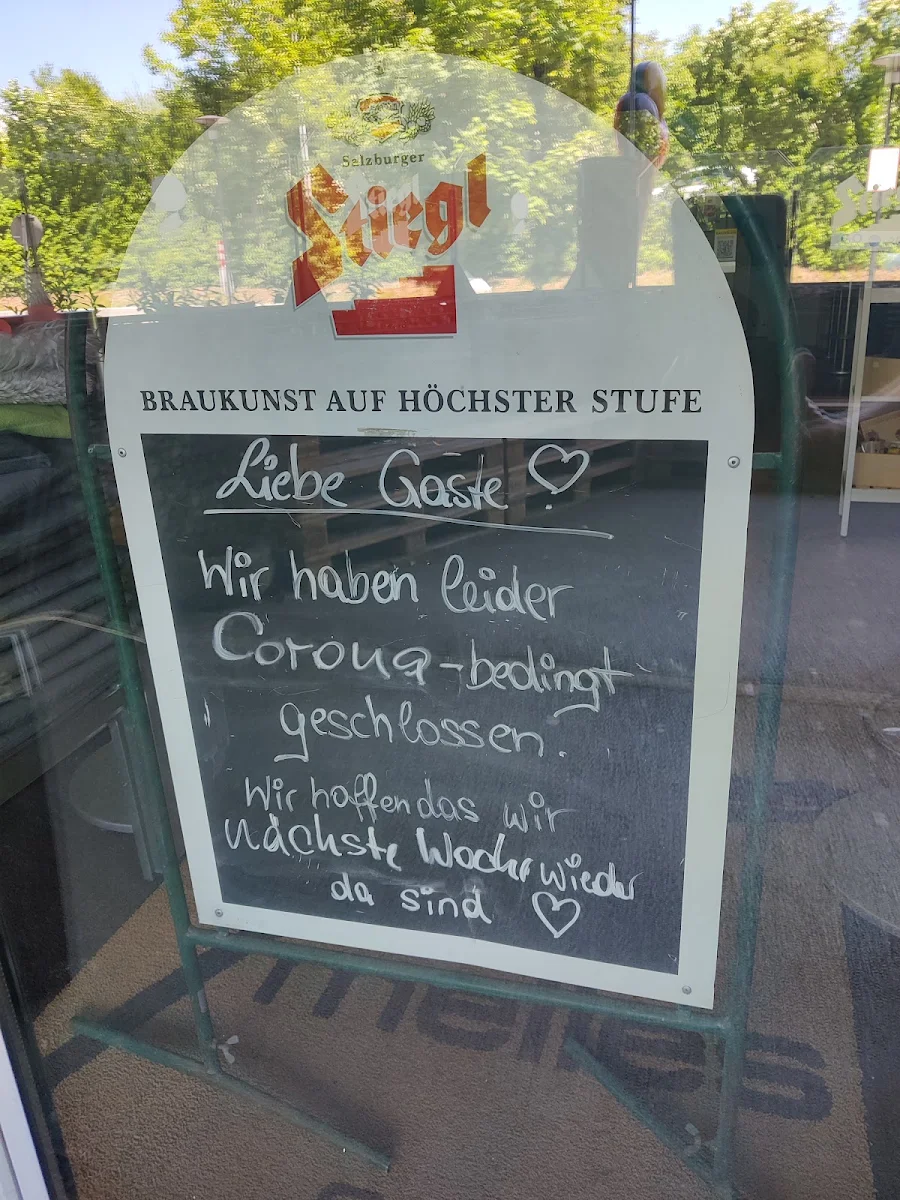 Salzburger
Stiegl
BRAUKUNST AUF HÖCHSTER STUFE
Liebe Gäste ♡
Wir haben leider
Corona-bedingt
geschlossen.
Wir hoffen das wir
nächste Woche wieder
da sind ♡